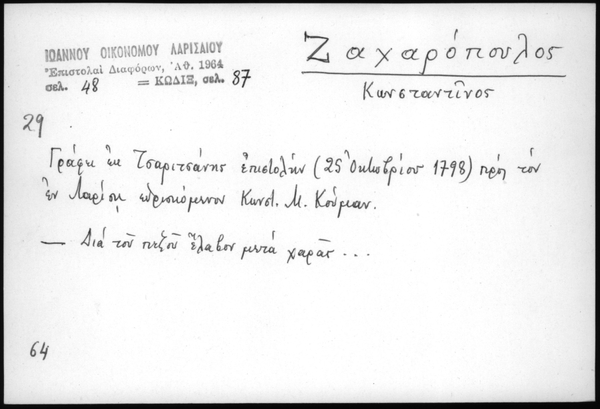 ΙΩΑΝΝΟΥ ΟΙΚΟΝΟΜΟΥ ΛΑΡΙΣΑΙΟΥ
Ἐπιστολαὶ Διαφόρων, Ἀθ. 1964
σελ. 48 = ΚΩΔΙΞ, σελ. 87
Ζαχαρόπουλος
Κωνσταντῖνος
29
Γράφει ἐκ Τσαριτσάνης ἐπιστολήν (25 Ὀκτωβρίου 1798) πρός τόν
ἐν Λαρίσῃ εὑρισκόμενον Κωνστ. Μ. Κούμαν.
— Διά τοῦ πεζοῦ ἔλαβον μετά χαρᾶς ...
64